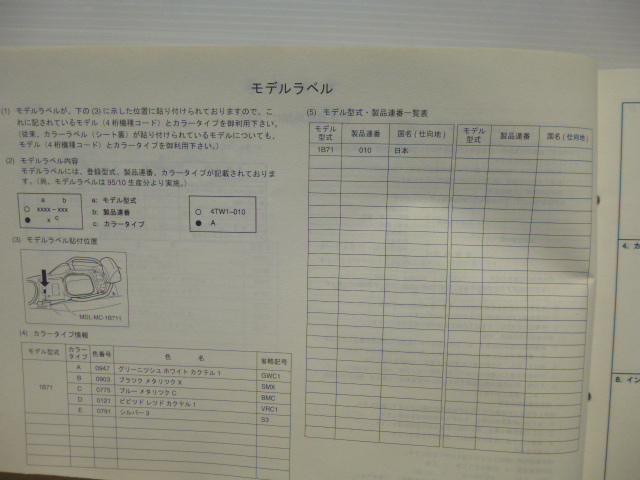 モデルラベル
(1) モデルラベルが、下の (3) に示した位置に貼り付けられておりますので、こ
れに記されているモデル ( 4 桁機種コード ) とカラータイプを御利用下さい。
(従来、カラーラベル ( シート裏 ) が貼り付けられているモデルについても、
モデル ( 4 桁機種コード ) とカラータイプを御利用下さい。)
(2) モデルラベル内容
モデルラベルには、登録型式、製品連番、カラータイプが記載されておりま
す。( 尚、モデルラベルは 95/10 生産分より実施。)
a b
xxxx – xxx
x c
a: モデル型式
b: 製品連番
c: カラータイプ
4TW1–010
A
(3) モデルラベル貼付位置
MDL-MC-1B711
(4) カラータイプ情報
モデル型式 カラータイプ 色番号 色 名 省略記号
1B71
A 0947 グリーニツシュ ホワイト カクテル 1 GWC1
B 0903 ブラツク メタリツク X SMX
C 0775 ブルー メタリツク C BMC
D 0121 ビビツド レツド カクテル 1 VRC1
E 0791 シルバー 3 S3
(5) モデル型式・製品連番一覧表
モデル型式 製品連番 国名 ( 仕向地 ) モデル型式 製品連番 国名 ( 仕向地 )
1B71 010 日本
4. カ
8. イン